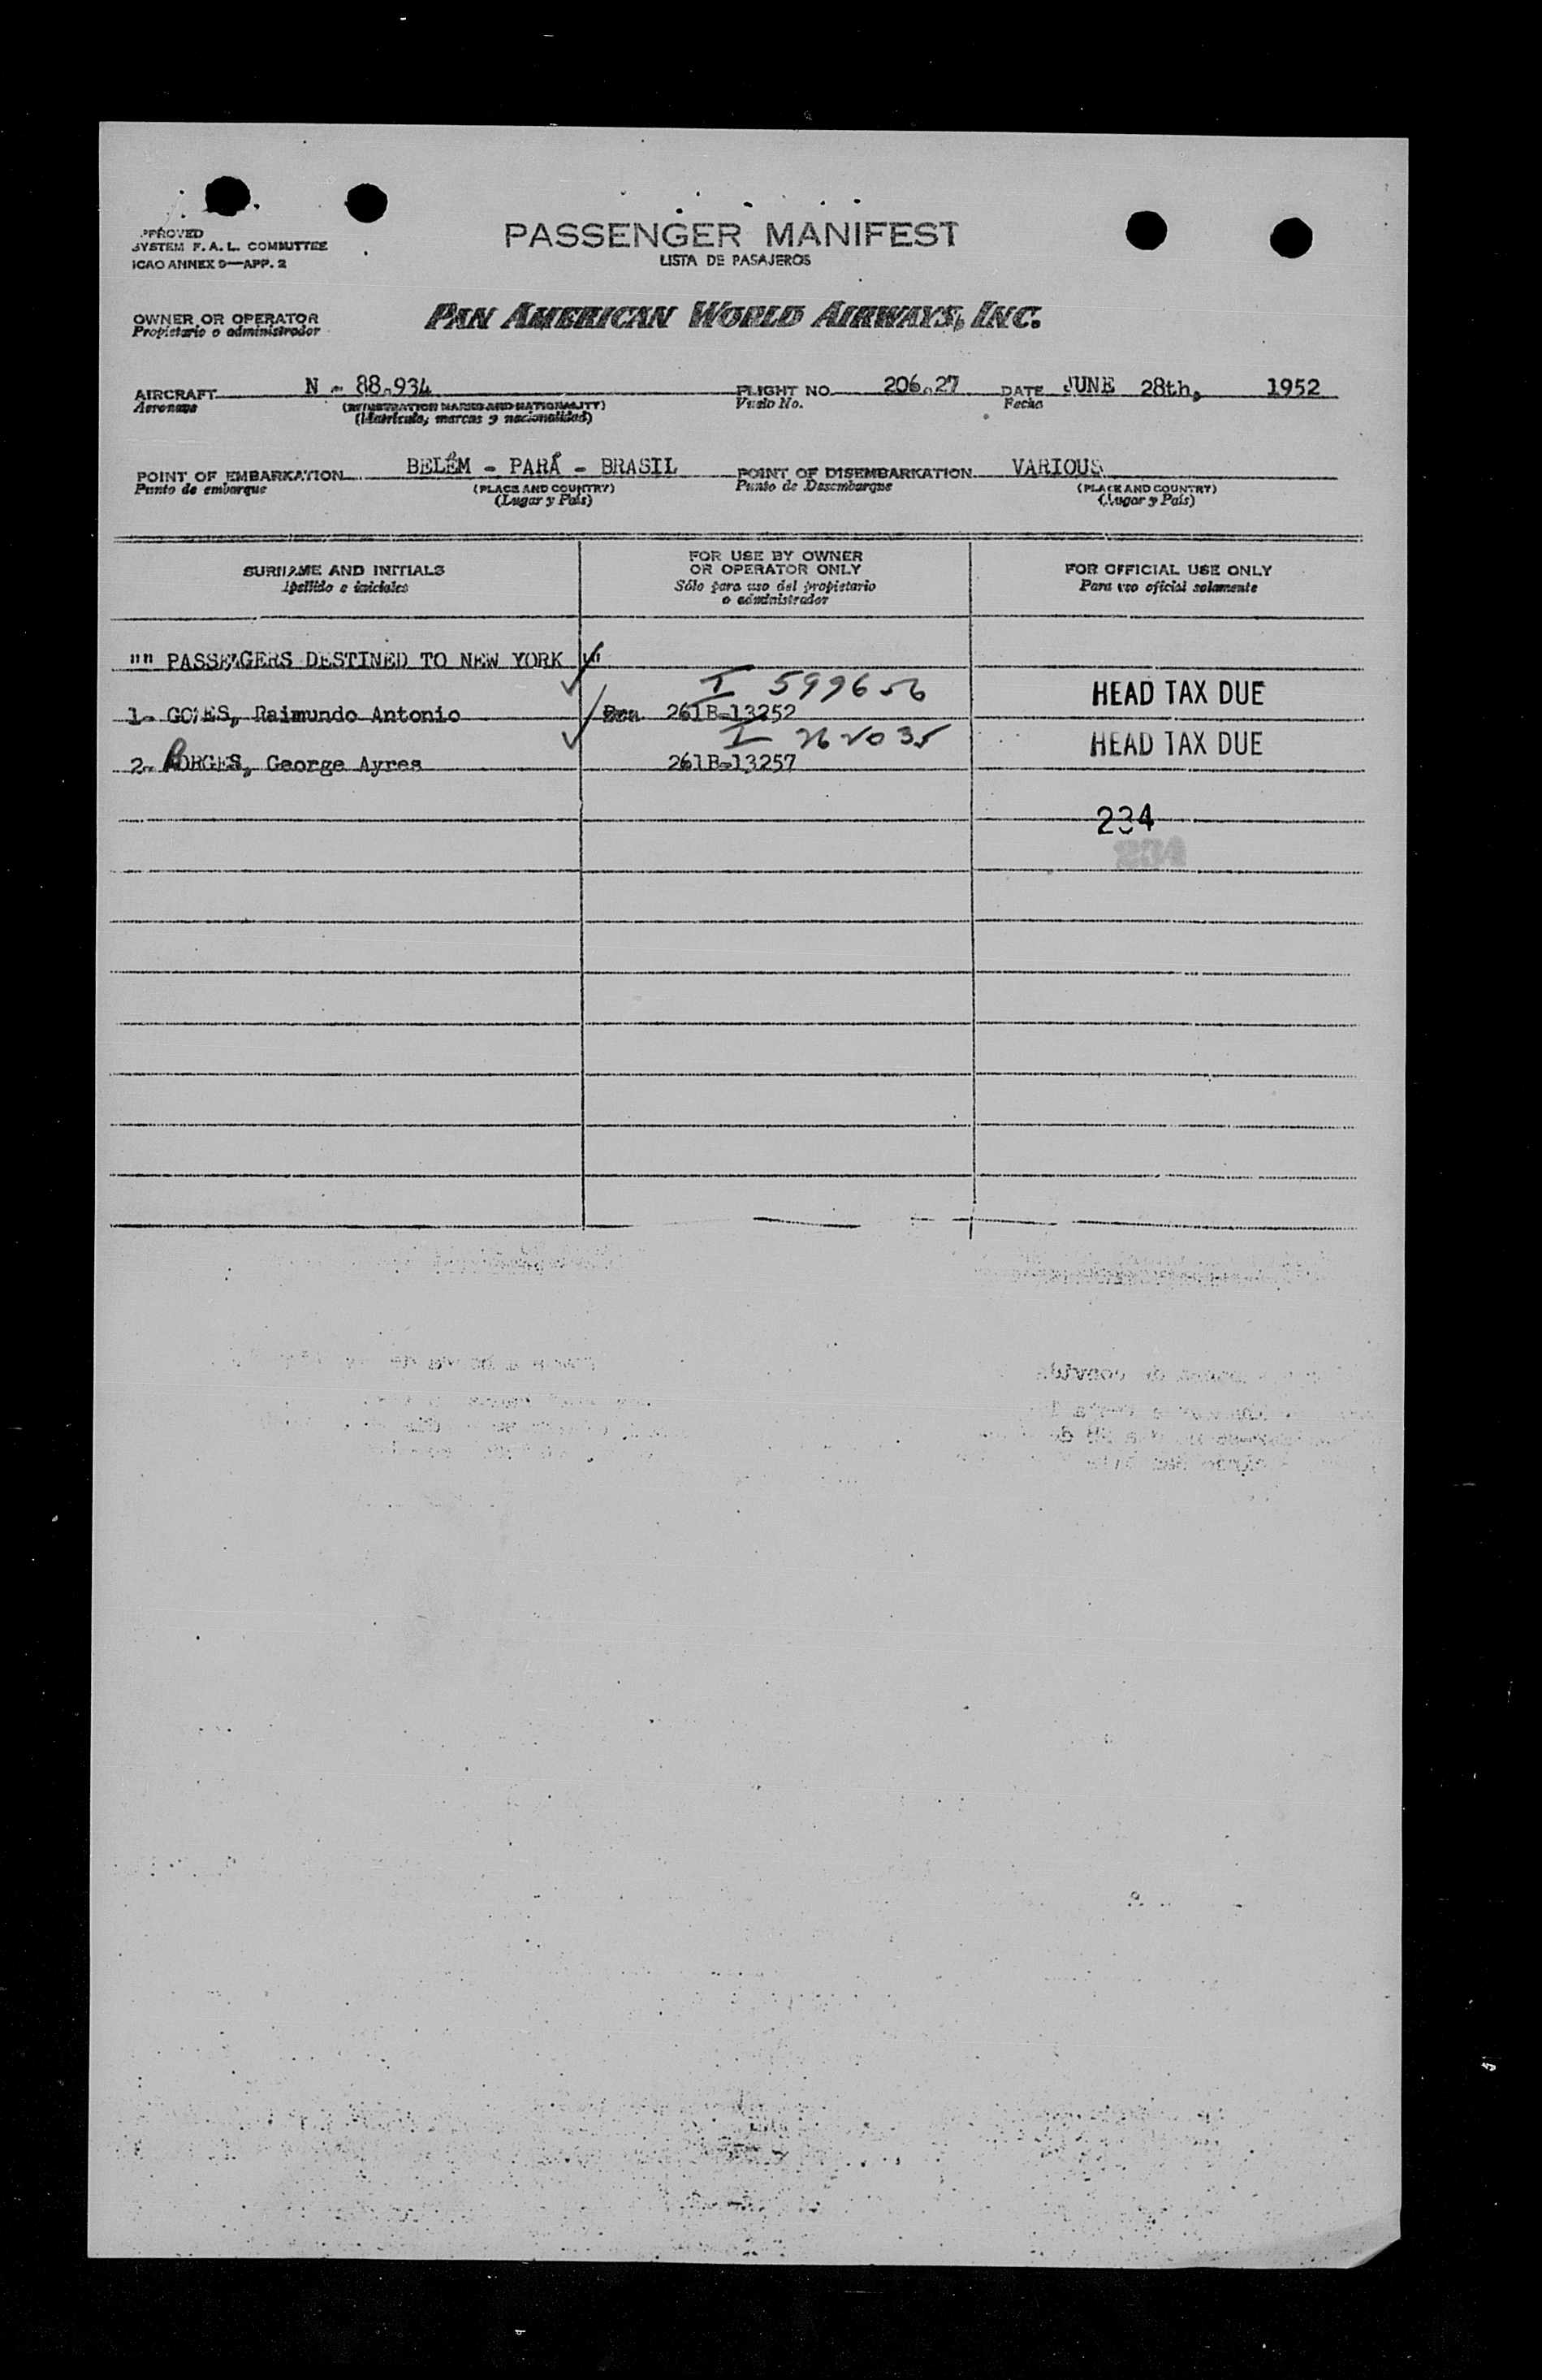 APPROVED
SYSTEM F. A. L. COMMITTEE
ICAO ANNEX 9—APP. 2
PASSENGER MANIFEST
LISTA DE PASAJEROS
OWNER OR OPERATOR
Propietario o administrador
PAN AMERICAN WORLD AIRWAYS, INC.
AIRCRAFT N - 88-934 FLIGHT NO. 206-27 DATE JUNE 28th, 1952
Aeronave (REGISTRATION MARKS AND NATIONALITY) Vuelo No. Fecha
(Matricula, marcas y nacionalidad)
POINT OF EMBARKATION BELÉM - PARÁ - BRASIL POINT OF DISEMBARKATION VARIOUS
Punto de embarque (PLACE AND COUNTRY) Punto de Desembarque (PLACE AND COUNTRY)
(Lugar y País) (Lugar y País)
SURNAME AND INITIALS
Apellido e iniciales
FOR USE BY OWNER
OR OPERATOR ONLY
Sólo para uso del propietario
o administrador
FOR OFFICIAL USE ONLY
Para uso oficial solamente
"" PASSENGERS DESTINED TO NEW YORK ""
I 599656 HEAD TAX DUE
1- GOMES, Raimundo Antonio 261B-13252
I 262035 HEAD TAX DUE
2- BORGES, George Ayres 261B-13257
234
234